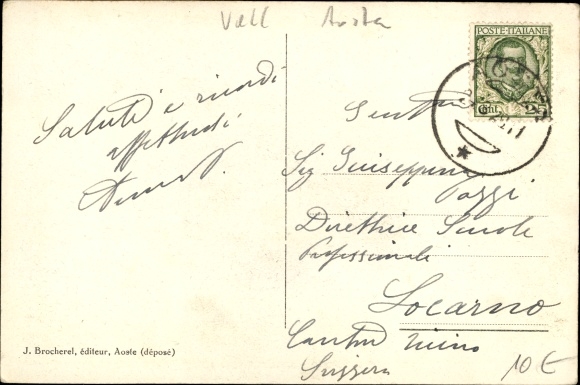 Vall Aosta
POSTE·ITALIANE
Cent.
Saluti e ricordi
affettuosi
Gent.
Sig Giuseppina
Poggi
Direttrice Scuole
Professionali
Locarno
Canton Ticino
Svizzera
J. Brocherel, éditeur, Aoste (déposé)
10 €